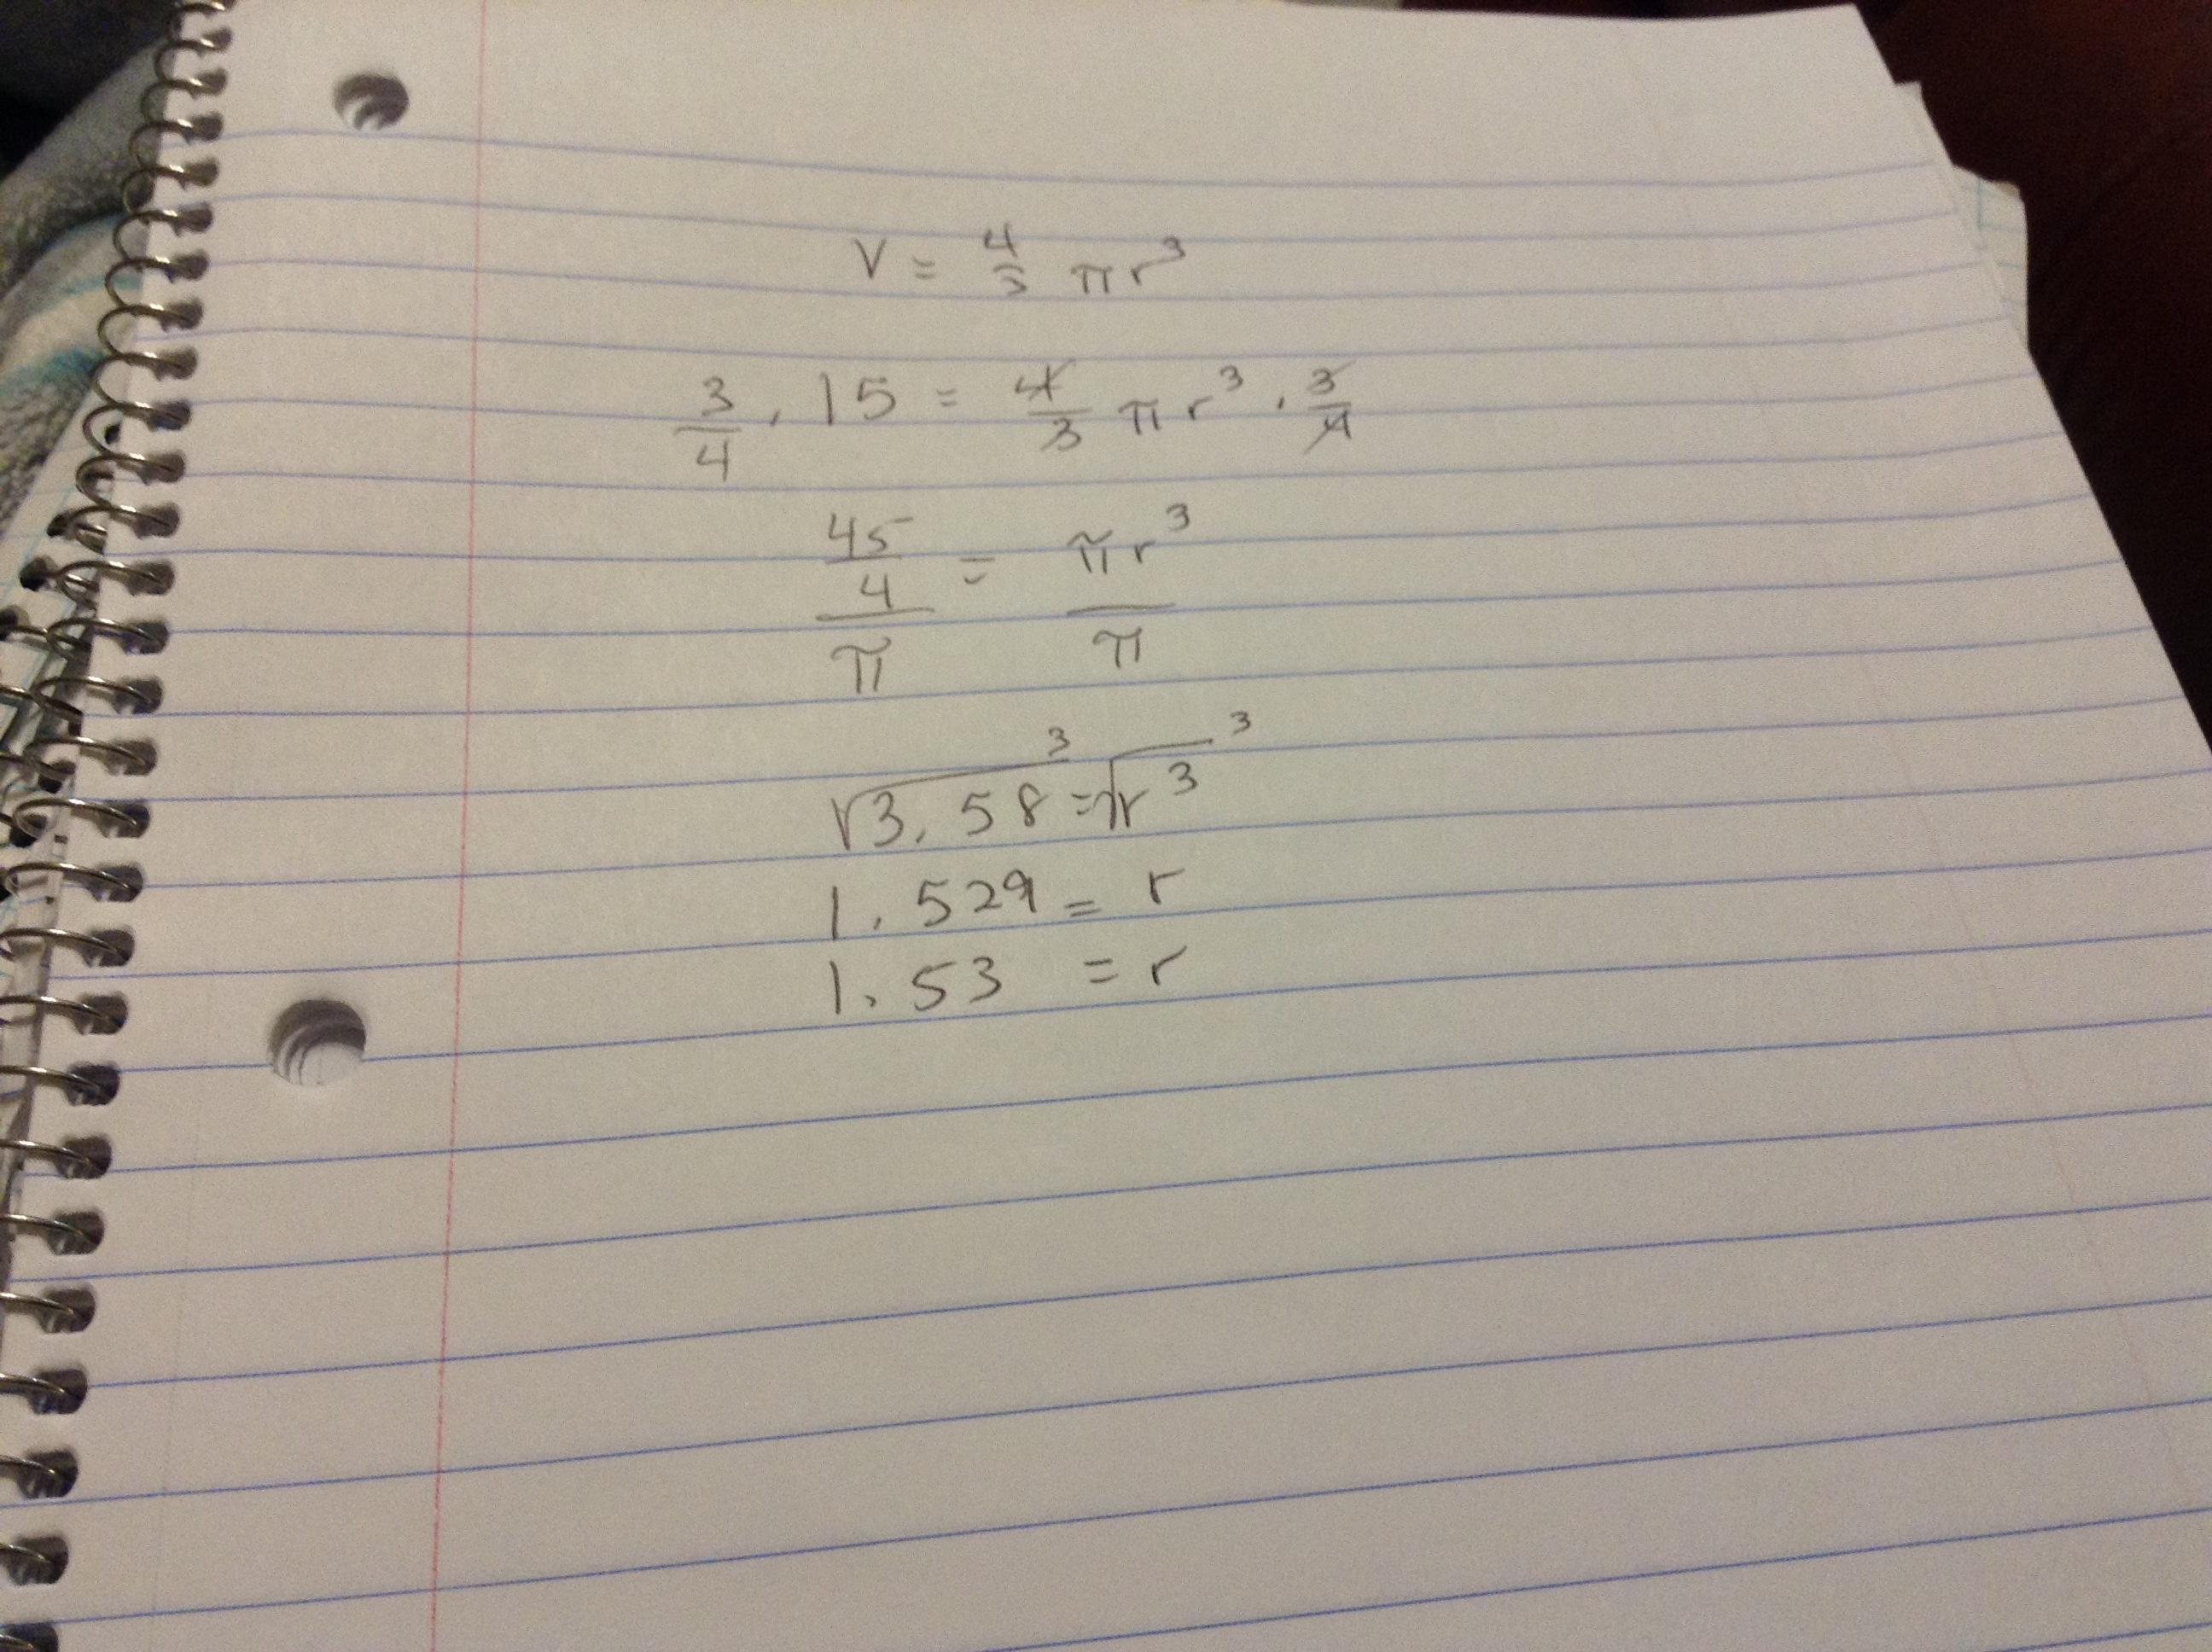 V = 4/3 πr³
3/4 · 15 = 4/3 πr³ · 3/4
45/4/π = πr³/π
√3.58³ = √r³³
1.529 = r
1.53 = r